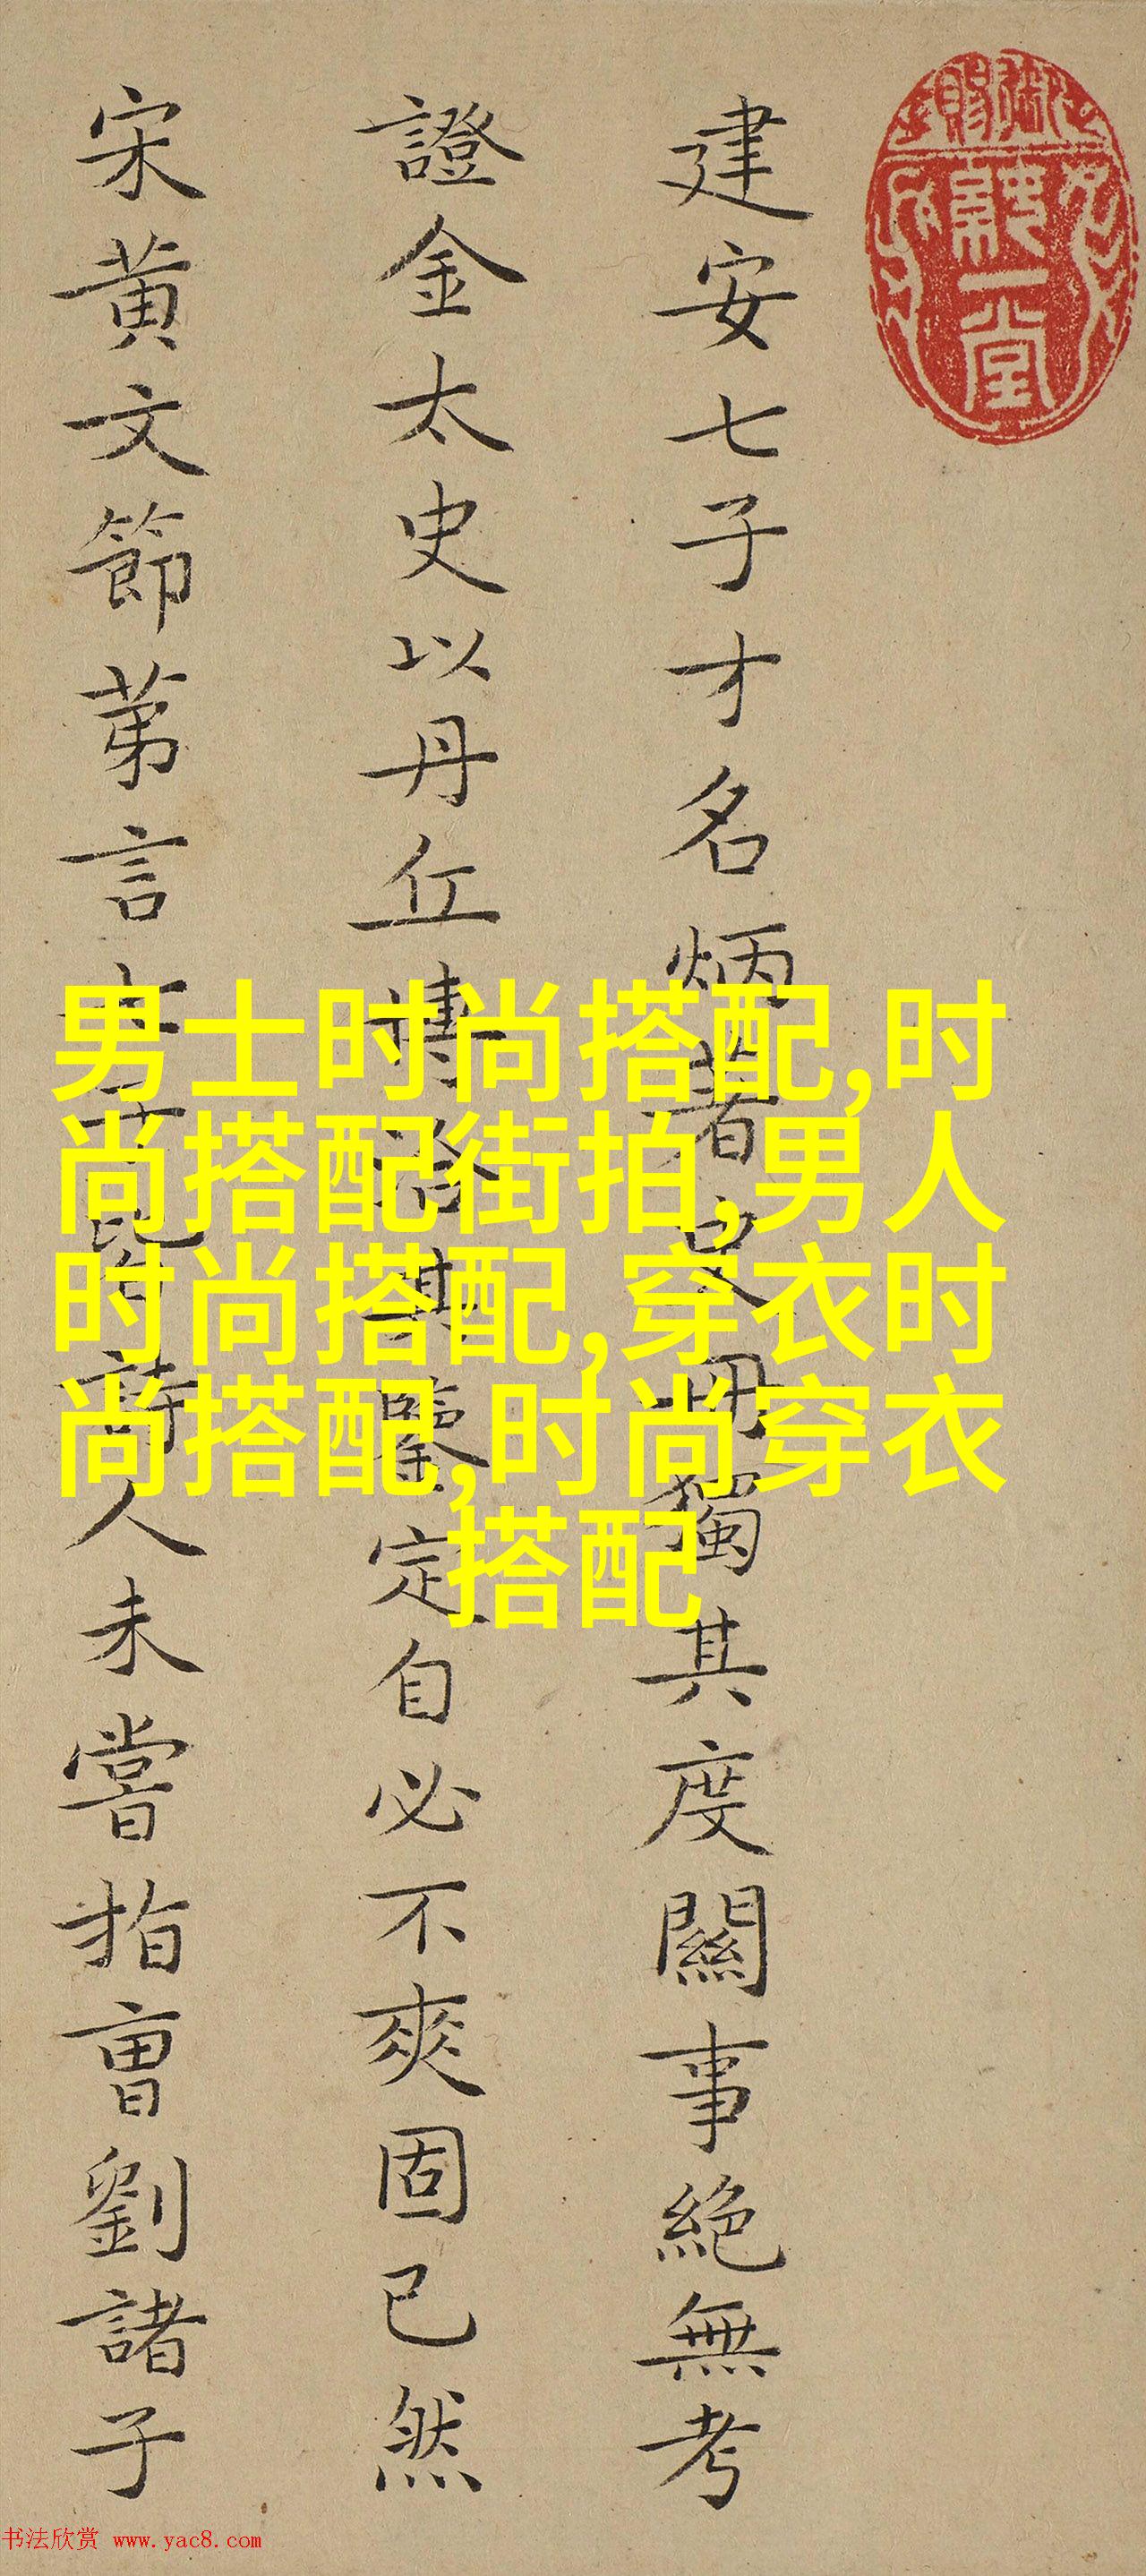 建安七子才名炳著史冊獨其度關事絶無考
證金太史以丹丘博洽其鑒定自必不爽固已然
宋黃文節苐言皆詩人未嘗指曹劉諸子
男士时尚搭配,时
尚搭配街拍,男人
时尚搭配,穿衣时
尚搭配,时尚穿衣
搭配
书法欣赏 www.yac8.com